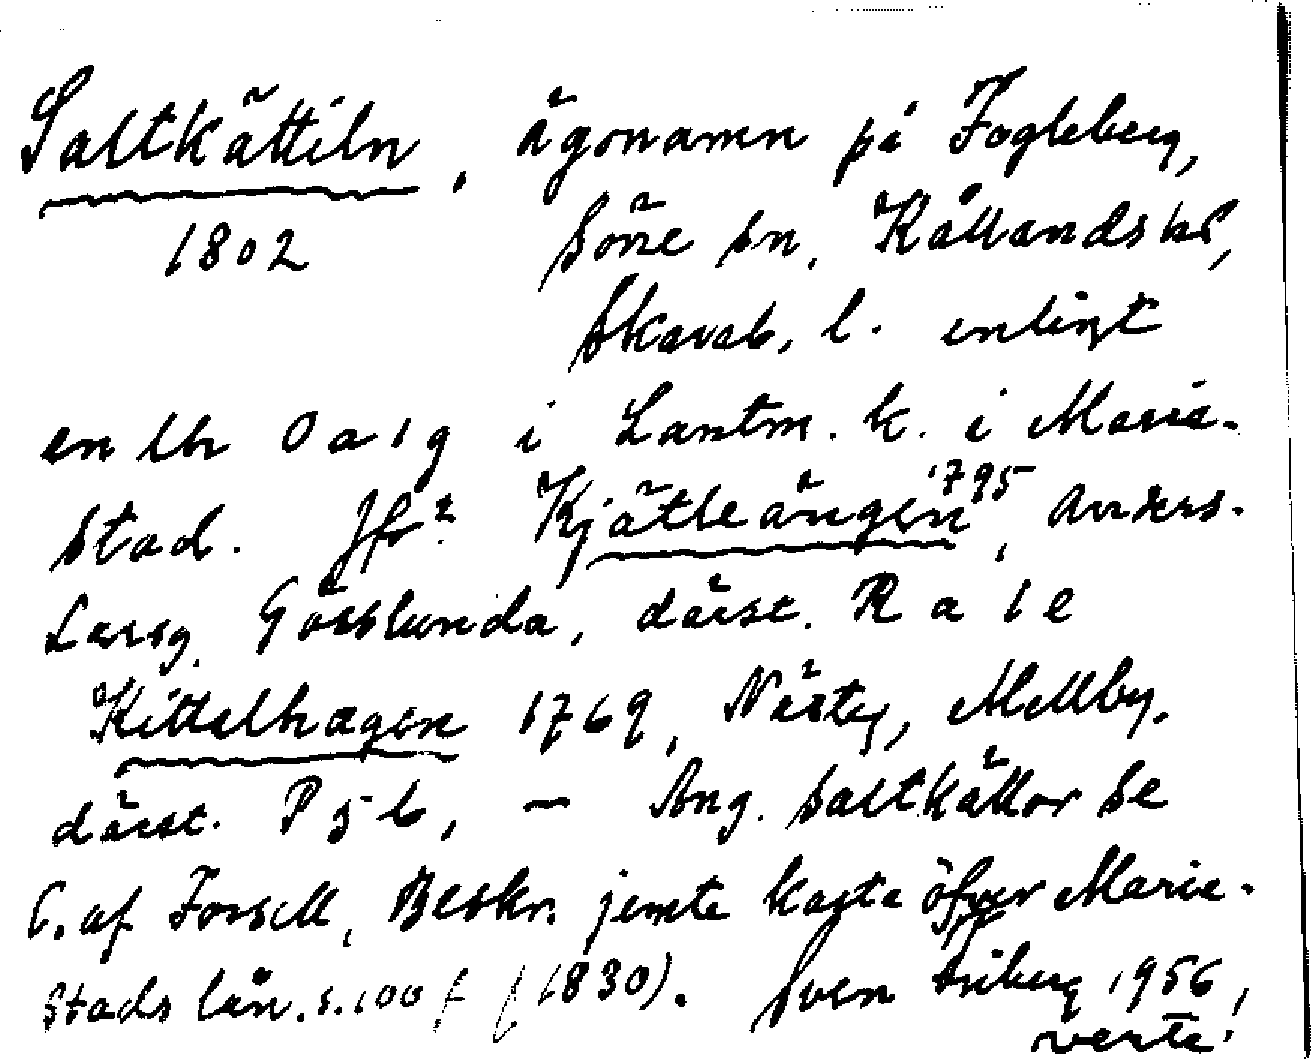 Saltkättiln, ägonamn på Fogleberg,
1802 Söne sn, Kållands hd,
Skarab. l. enligt
en lh O a 1 g i Lantm. k. i Marie-
stad. Jfr Kjätleängen 1795, Anders-
Larsg. Gösslunda, därst. R a 1 e
Kittelhagen 1769, Näsby, Mellby.
därst. P 5 b, — Ang. saltkällor se
C. af Forsell, Beskr. jemte karta öfver Marie-
stads län. s. 100 f (1830). Sven Friberg 1956,
verte!